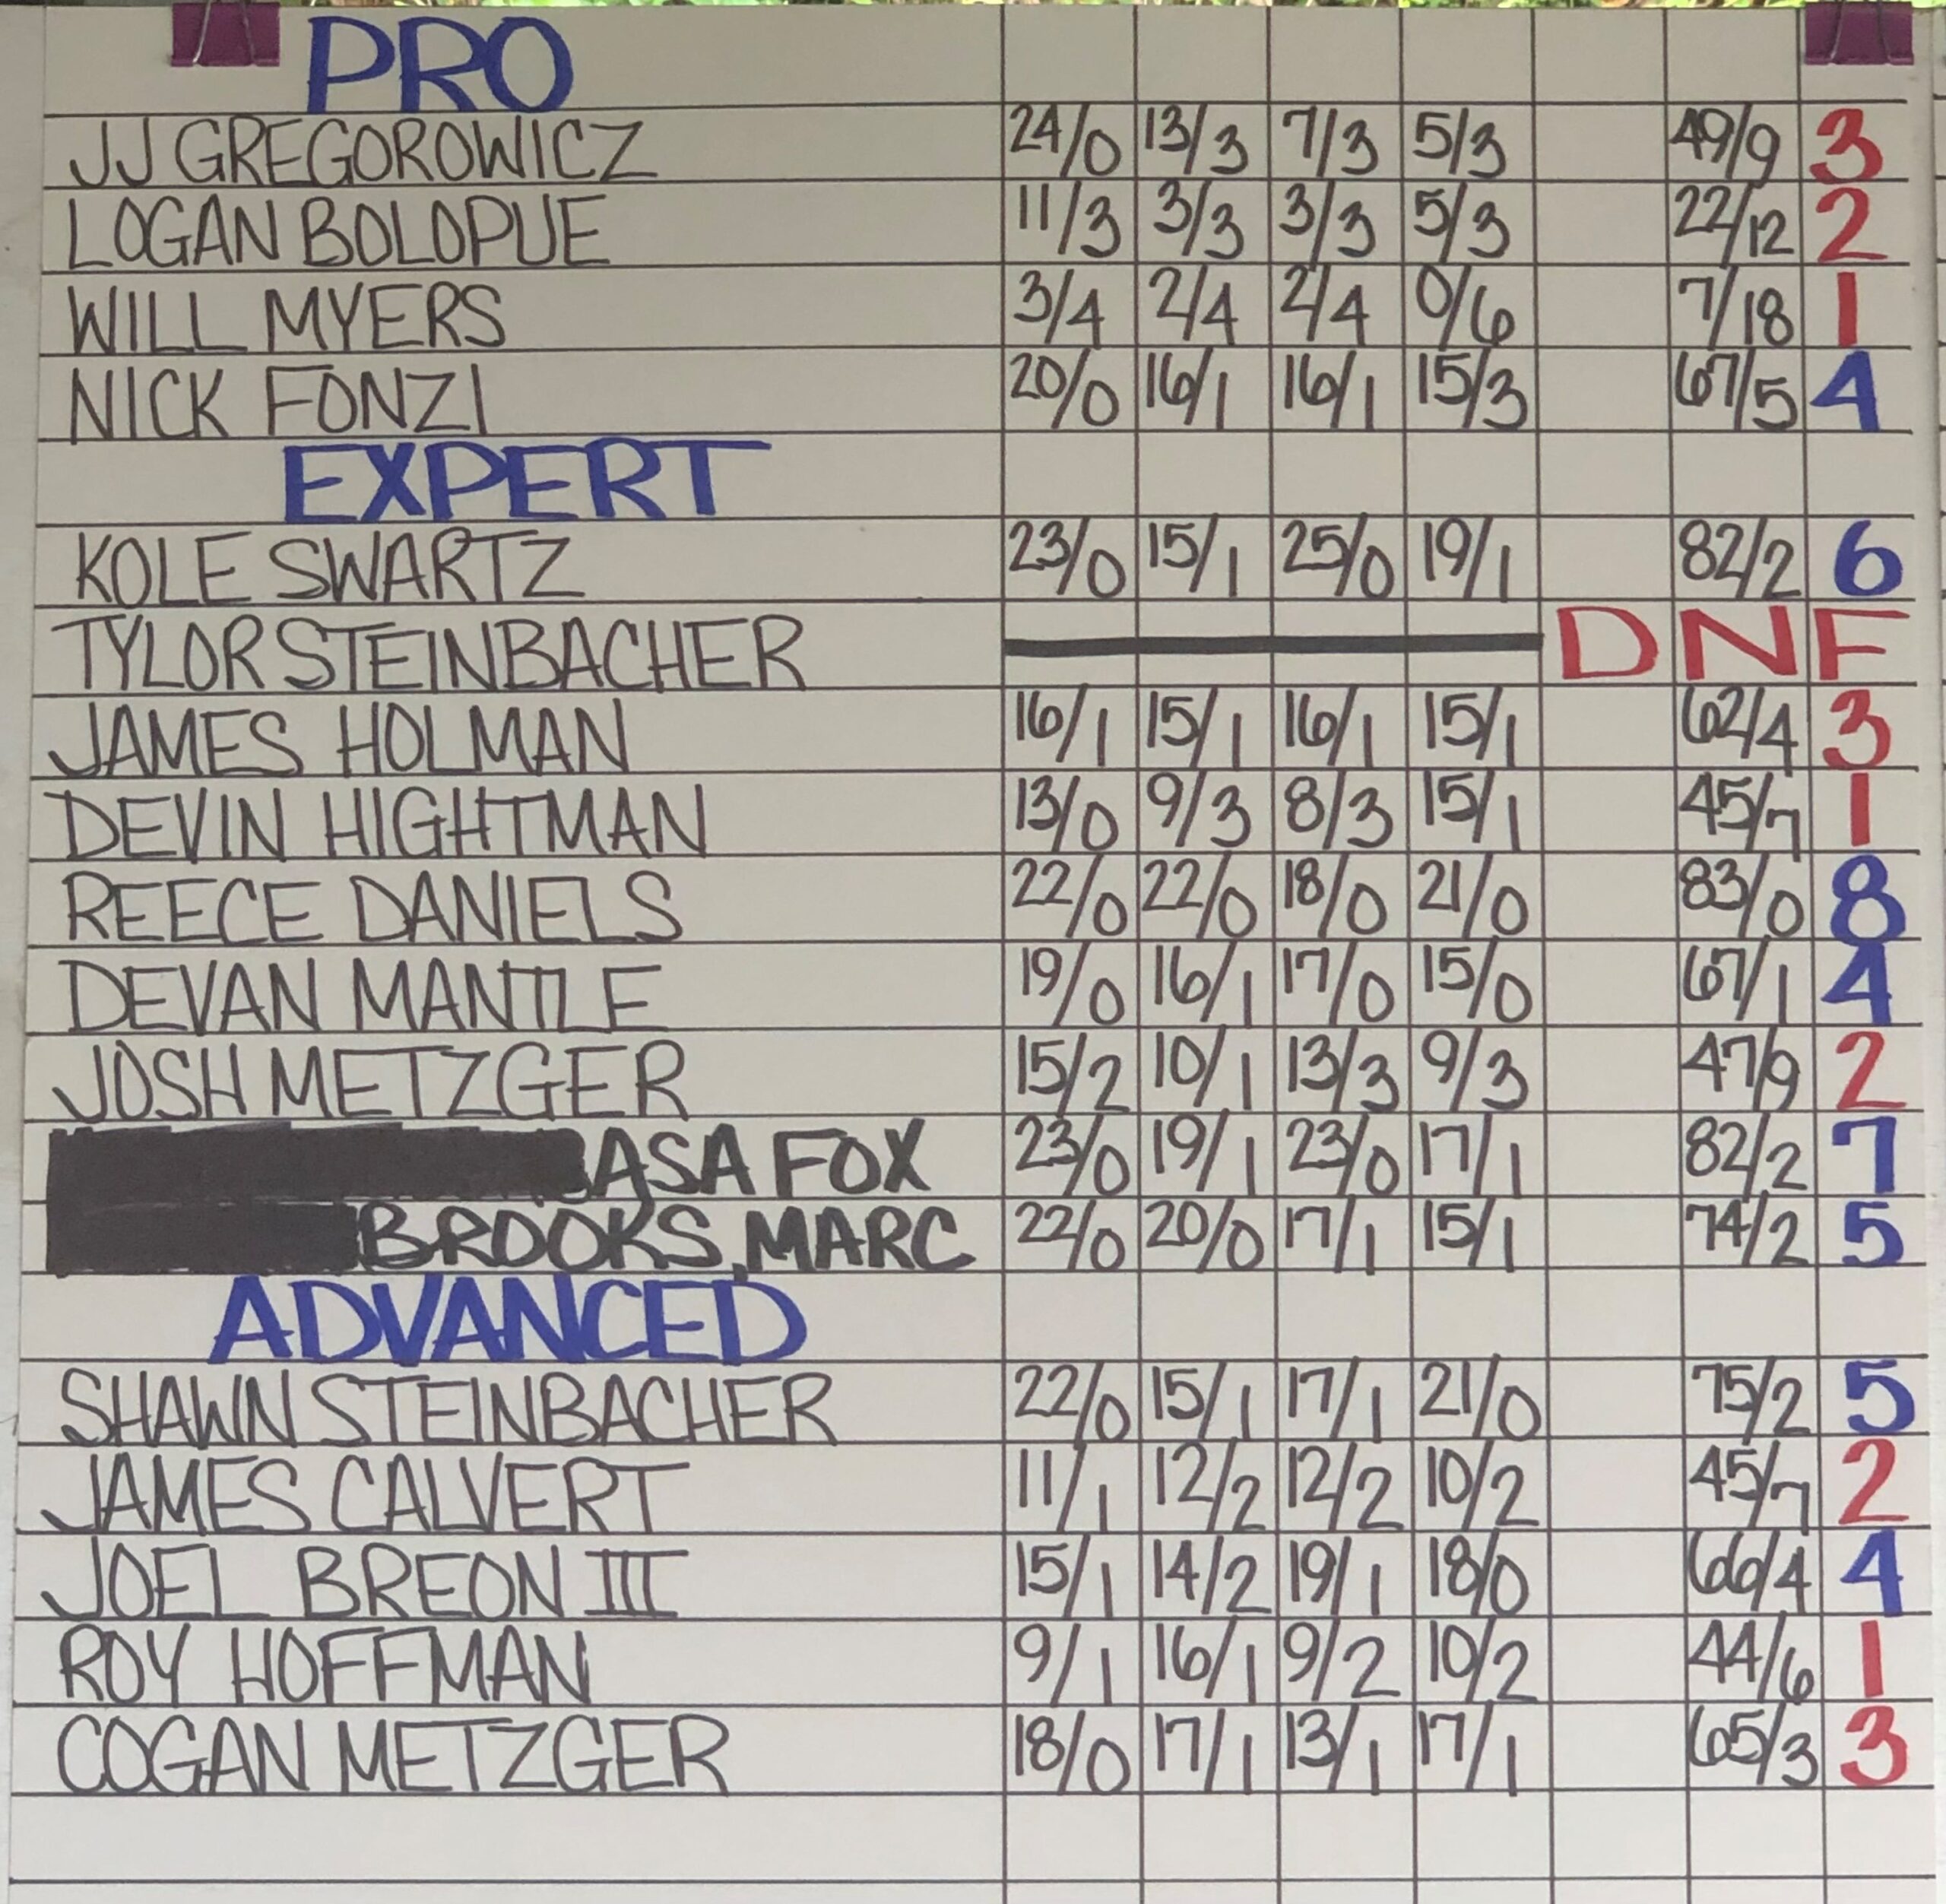 PRO
JJ GREGOROWICZ 24/0 13/3 7/3 5/3 49/9 3
LOGAN BOLOPUE 11/3 3/3 3/3 5/3 22/12 2
WILL MYERS 3/4 2/4 2/4 0/6 7/18 1
NICK FONZI 20/0 16/1 16/1 15/3 67/5 4
EXPERT
KOLE SWARTZ 23/0 15/1 25/0 19/1 82/2 6
TYLOR STEINBACHER DNF
JAMES HOLMAN 16/1 15/1 16/1 15/1 62/4 3
DEVIN HIGHTMAN 13/0 9/3 8/3 15/1 45/7 1
REECE DANIELS 22/0 22/0 18/0 21/0 83/0 8
DEVAN MANTLE 19/0 16/1 17/0 15/0 67/1 4
JOSH METZGER 15/2 10/1 13/3 9/3 47/9 2
ASA FOX 23/0 19/1 23/0 17/1 82/2 7
BROOKS, MARC 22/0 20/0 17/1 15/1 74/2 5
ADVANCED
SHAWN STEINBACHER 22/0 15/1 17/1 21/0 75/2 5
JAMES CALVERT 11/1 12/2 12/2 10/2 45/7 2
JOEL BREON III 15/1 14/2 19/1 18/0 66/4 4
ROY HOFFMAN 9/1 16/1 9/2 10/2 44/6 1
COGAN METZGER 18/0 17/1 13/1 17/1 65/3 3